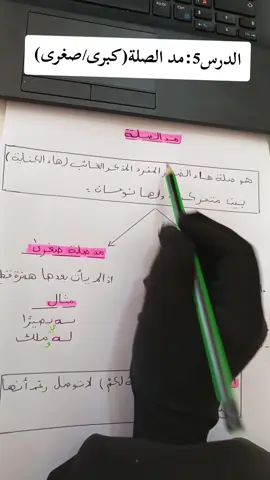 الدرس5:مد الصلة(كبرى/صغرى)
مد الصلة
هو صلة هاء المفرد المذكر الغائب (هاء الكناية)
بين متحركين ولها نوعان:
مد صلة صغرى
إذا لم يأت بعدها همزة قطع
مثال
به بصيرًا
له ملك
لكم) لا توصل رغم أنها